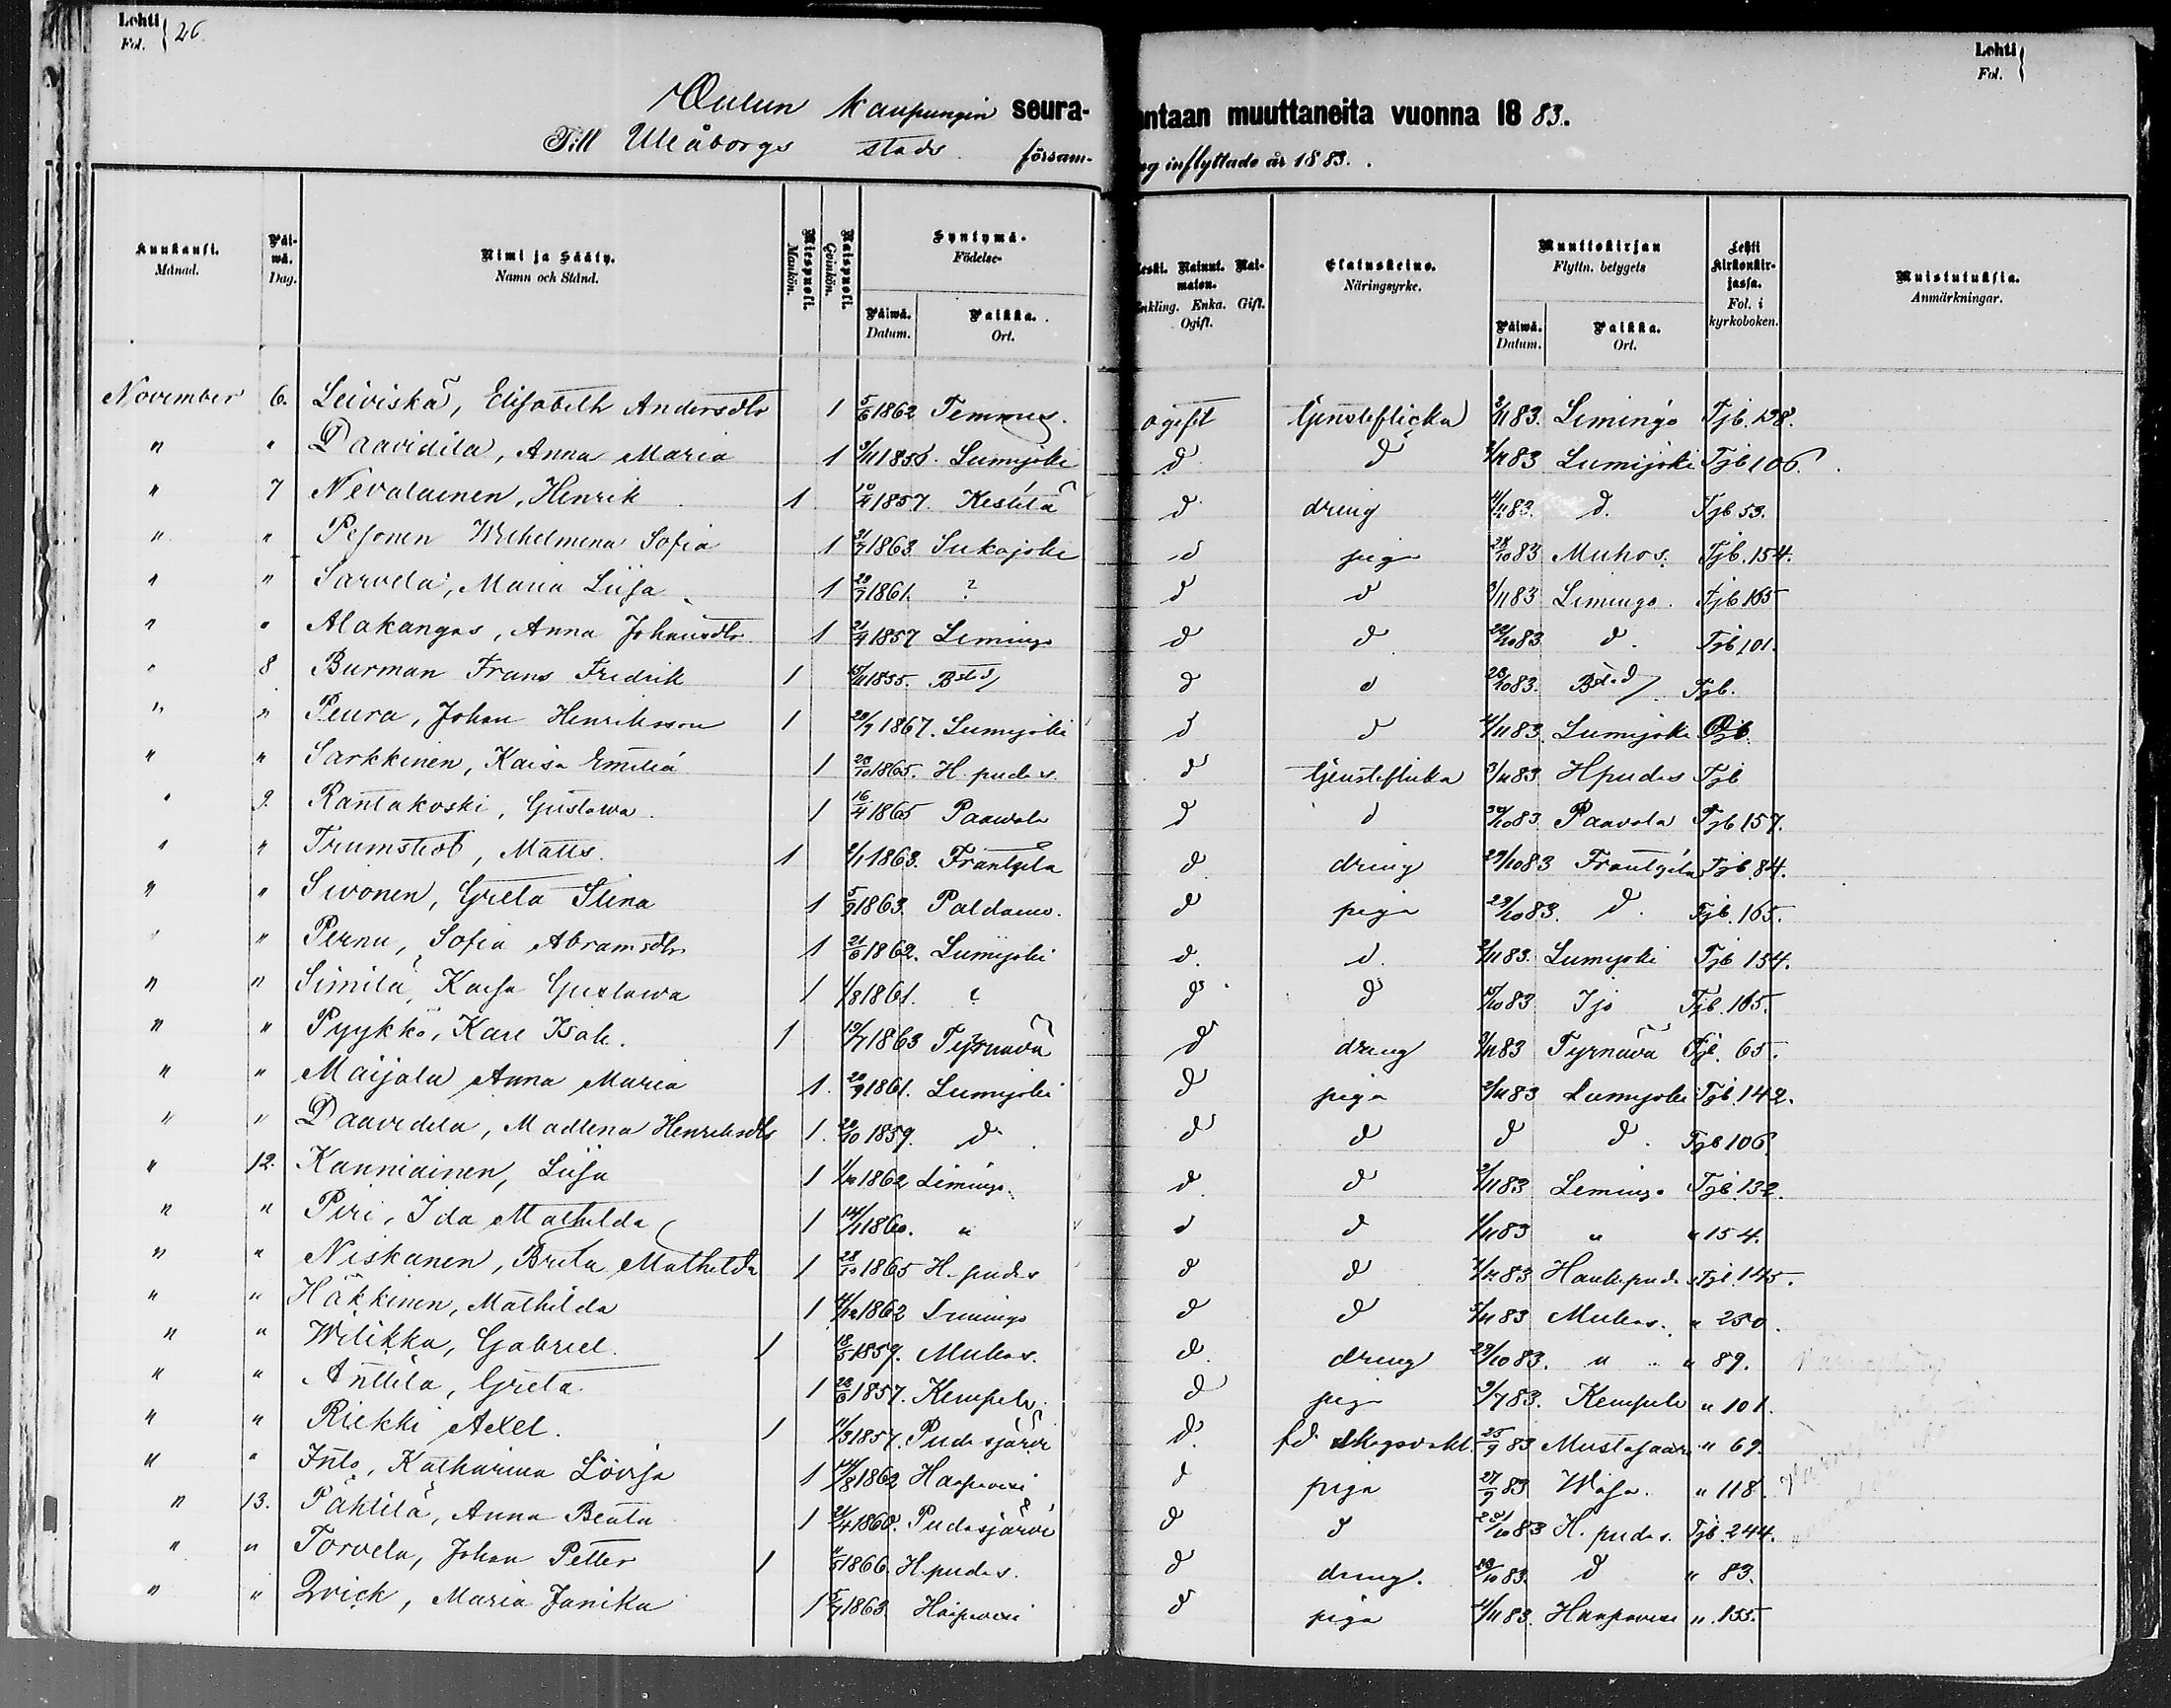 Lehti Fol. } 26.
Lehti Fol. }
Oulun kaupungin seura- ntaan muuttaneita vuonna 18 83.
Till Uleåborgs stads försam- ng inflyttade år 18 83.
Kuukausi. Månad. Päi-wä. Dag. Nimi ja Sääty. Namn och Stånd. Miespuoli. Mankön. Naispuoli. Qvinkön. Syntymä- Födelse- Päiwä. Datum. Paikka. Ort. Leski. Nainut. Nai-maton. Enkling. Enka. Gift. Ogift. Elatuskeino. Näringsyrke. Muuttokirjan Flyttn. betygets Päiwä. Datum. Paikka. Ort. Lehti Kirkonkir-jassa. Fol. i kyrkoboken. Muistutuksia. Anmärkningar.
November 6. Leiviskä, Elisabeth Andersdtr 1 5/6 1862 Temmes. ogift tjensteflicka 3/11 83. Limingo Tjb. 138.
" " Daavidila, Anna Maria 1 3/11 1855. Lumijoki d d 2/11 83 Lumijoki Tjb 106.
" 7 Nevalainen, Henrik 1 10/4 1857. Kestilä d dreng 4/11 83. d. Tjb 53.
" " Pesonen Wilhelmina Sofia 1 31/7 1863 Sikajoki d piga 28/10 83 Muhos. Tjb. 154.
" " Sarvela, Maria Liisa 1 29/7 1861. ? d d 3/11 83 Limingo. Tjb 165
" " Alakangas, Anna Johansdtr 1 21/4 1857 Limingo d d 22/10 83 d. Tjb 101.
" 8 Burman Frans Fredrik 1 15/11 1855. Bstd d d 28/10 83. Bstd Tjb.
" " Peura, Johan Henriksson 1 29/9 1867. Lumijoki d d 4/11 83. Lumijoki Tjb.
" " Sarkkinen, Kaisa Emilia 1 28/10 1865. H. pudas d tjensteflicka 3/11 83 Hpudas Tjb
" 9. Rantakoski, Gustawa 1 16/4 1865 Paawola d d 30/10 83 Paavola Tjb 157.
" " Trumsted, Matts. 1 2/1 1863. Frantsila d dreng 29/10 83 Frantsila Tjb. 84.
" " Sivonen, Greta Stina 1 5/9 1863 Paldamo. d piga 29/10 83. d. Tjb. 165.
" " Pernu, Sofia Abramsdtr 1 21/6 1862. Lumijoki d. d. 2/11 83. Lumijoki Tjb 154.
" " Similä, Kaisa Gustawa 1 1/8 1861. ? d d 15/10 83 Ijo Tjb. 165.
" " Pyykkö, Karl Isak. 1 19/7 1863 Tyrnävä d dreng 3/11 83 Tyrnävä Tjb. 65.
" " Maijala Anna Maria 1. 20/9 1861. Lumijoki d piga 2/11 83 Lumijoki Tjb. 142.
" " Daavidila, Madlena Henriksdtr 1. 20/10 1859. d d d d d. Tjb 106.
" 12. Kanniainen, Liisa 1 1/10 1862 Limingo. d d 2/11 83 Limingo Tjb. 132.
" " Piri, Ida Mathilda 1 14/1 1860. " d d 1/11 83 " " 154.
" " Niskanen, Brita Mathilda 1 28/10 1865 H. pudas d d 7/11 83 Haukipudas Tjb. 145.
" " Häkkinen, Mathilda 1 4/12 1862 Limingo d d 5/11 83 Muhos. " 250.
" " Wilikka, Gabriel. 1 18/5 1859. Muhos. d. dreng 29/10 83. " " 89.
" " Anttila, Greta 1 22/6 1857. Kempele. d piga 9/7 83. Kempele " 101.
" " Riekki Axel. 1 11/3 1857. Pudasjärvi d. fd skogsvakt. 25/9 83 Mustasaari " 69.
" " Into, Katharina Lovisa 1 14/8 1862 Haapavesi d piga 27/9 83 Wasa. " 118.
" 13. Pähtilä, Anna Beata 1 21/4 1860. Pudasjärvi d d 30/10 83 H. pudas. Tjb. 244.
" " Torvela, Johan Petter 1 1866. H. pudas. d dreng. 29/10 83. d " 83.
" " Qvick, Maria Janika 1 5/7 1863 Haapavesi d piga 4/11 83. Haapavesi " 155.